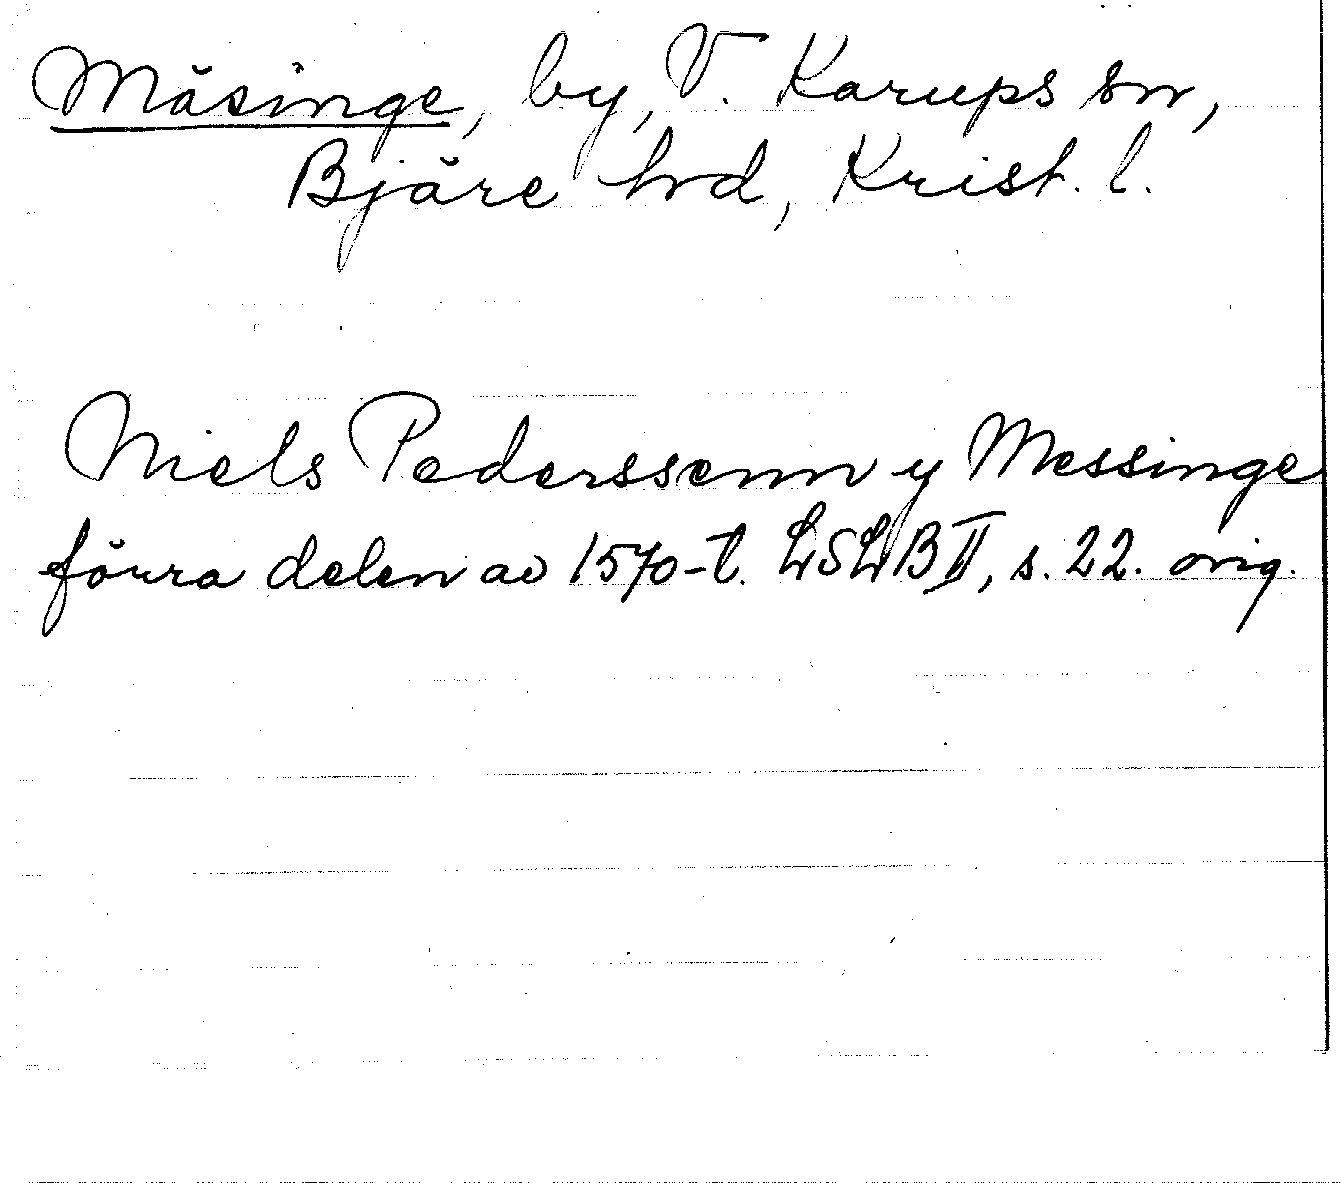 Mäsinge, by, V. Karups sn,
Bjäre hd, Krist. l.
Niels Pederssenn y Messinge
förra delen av 1570-t. LSLB II, s. 22. orig.